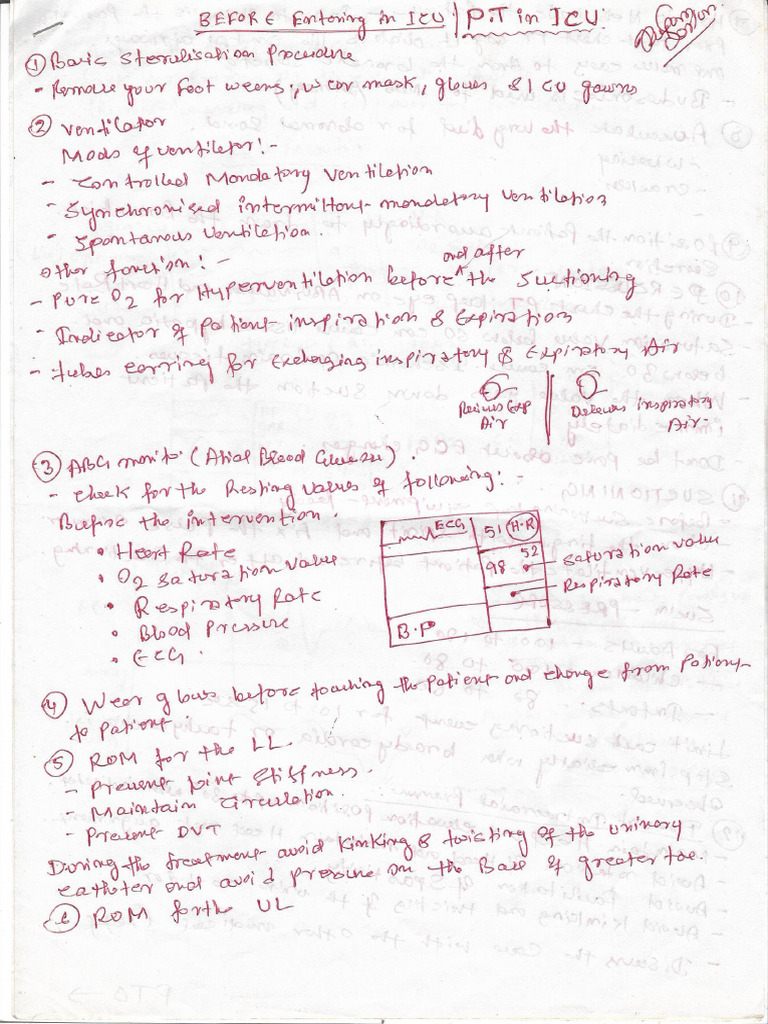 BEFORE Entering in ICU | P.T in ICU
① Basic Sterelisation Procedure
- Remove your foot weers, wear mask, gloves & ICU gowns
② Ventilator
Mods of ventiletor:-
- Controlled Mandatory Ventiletion
- Synchronised intermittory mandetory ventiletion
- Spontanous ventiletion.
Other fonction:-
- Pure O2 for Hyperventiletion before and after the Suctioning
- Indicator of patient inspiration & Expiration
- tubes carring for exchanging inspiratory & Expiratory Air
Recives Exp Air
Delevers inspiratory Air
③ ABG monitor (Atial Blood Glucose).
- check for the Resting values of following:-
Before the intervention.
• Heart Rate
• O2 Saturation value
• Respiratory Rate
• Blood Pressure
• ECG.
ECG 51 H.R
98 52 Saturation value
Respiratory Rate
B.P
④ Wear gloves before touching the patient and change from patient
to patient.
⑤ ROM for the LL.
- Prevent Joint Stiffness.
- Maintain Circulation.
- Prevent DVT
During the treatment avoid kinking & twisting of the urinary
catheter and avoid pressure on the Base of greater toe.
⑥ ROM for the UL
PTO